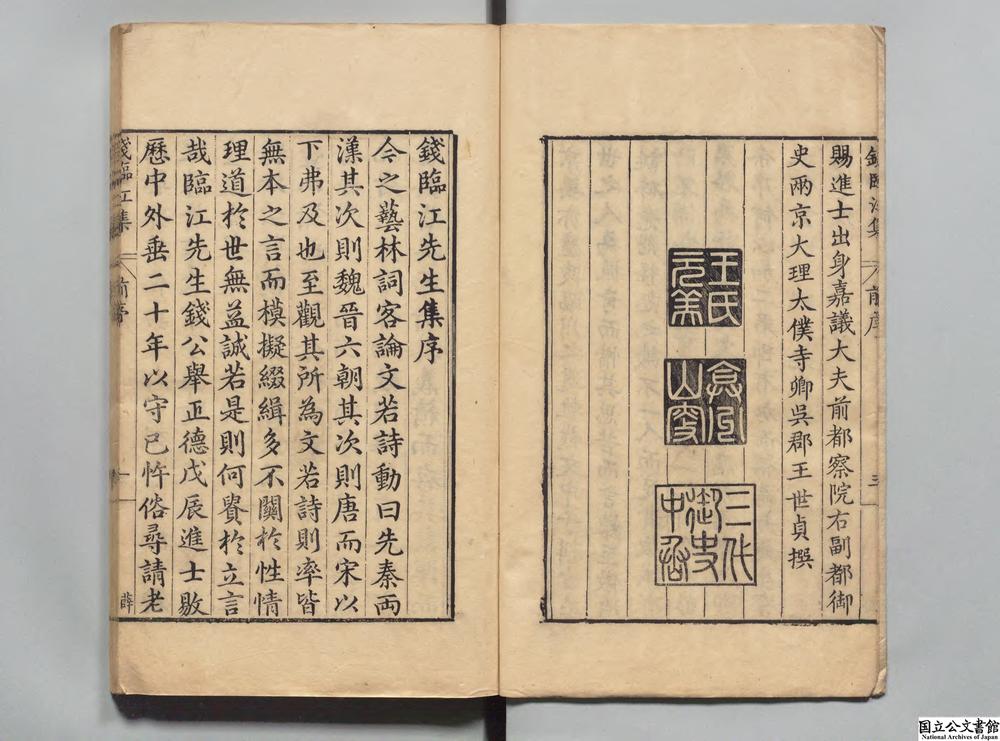 賜進士出身嘉議大夫前都察院右副都御
史兩京大理太僕寺卿吳郡王世貞撰
王氏
元美
三代
御史
中丞
錢臨江先生集序
今之藝林詞客論文若詩動曰先秦兩
漢其次則魏晉六朝其次則唐而宋以
下弗及也至觀其所為文若詩則率皆
無本之言而模擬綴緝多不關於性情
理道於世無益誠若是則何貴於立言
哉臨江先生錢公舉正德戊辰進士敭
歷中外垂二十年以守已忤俗尋請老
錢臨江集
前序
一
薛
国立公文書館
National Archives of Japan